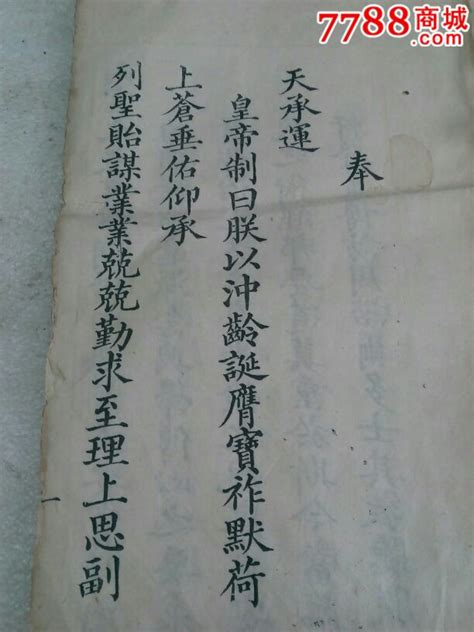 7788商城
.com
奉
天承運
皇帝制曰朕以沖齡誕膺寶祚默荷
上蒼垂佑仰承
列聖貽謀業業兢兢勤求至理上思副